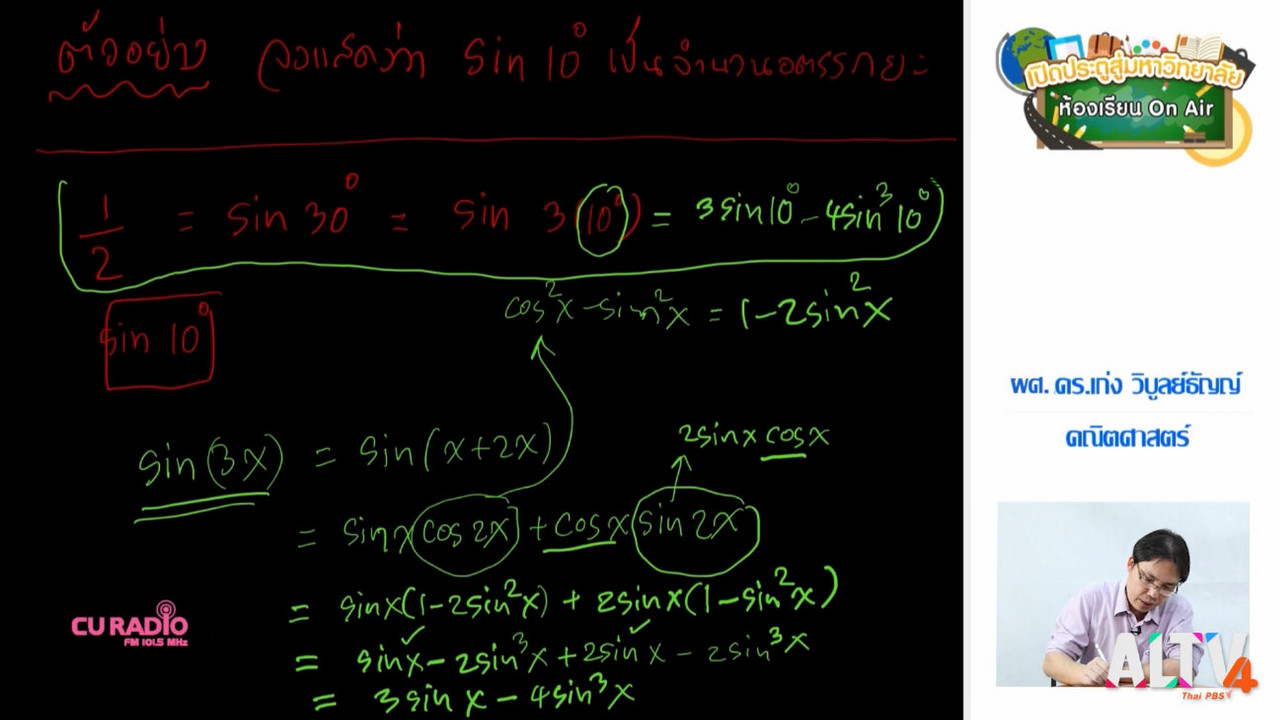 ตัวอย่าง จงแสดงว่า sin 10° เป็นจำนวนอตรรกยะ
1/2 = sin 30° = sin 3(10°) = 3sin10° - 4sin³10°
cos²x - sin²x = 1 - 2sin²x
sin 10°
2sinx cosx
sin(3x) = sin(x+2x)
= sinx cos2x + cosx sin2x
= sinx(1-2sin²x) + 2sinx(1-sin²x)
= sinx - 2sin³x + 2sinx - 2sin³x
= 3sinx - 4sin³x
CU RADIO
FM 101.5 MHz
เปิดประตูสู่มหาวิทยาลัย
ห้องเรียน On Air
ผศ. ดร.เก่ง วิบูลย์ธัญญ์
คณิตศาสตร์
ALTV4
Thai PBS